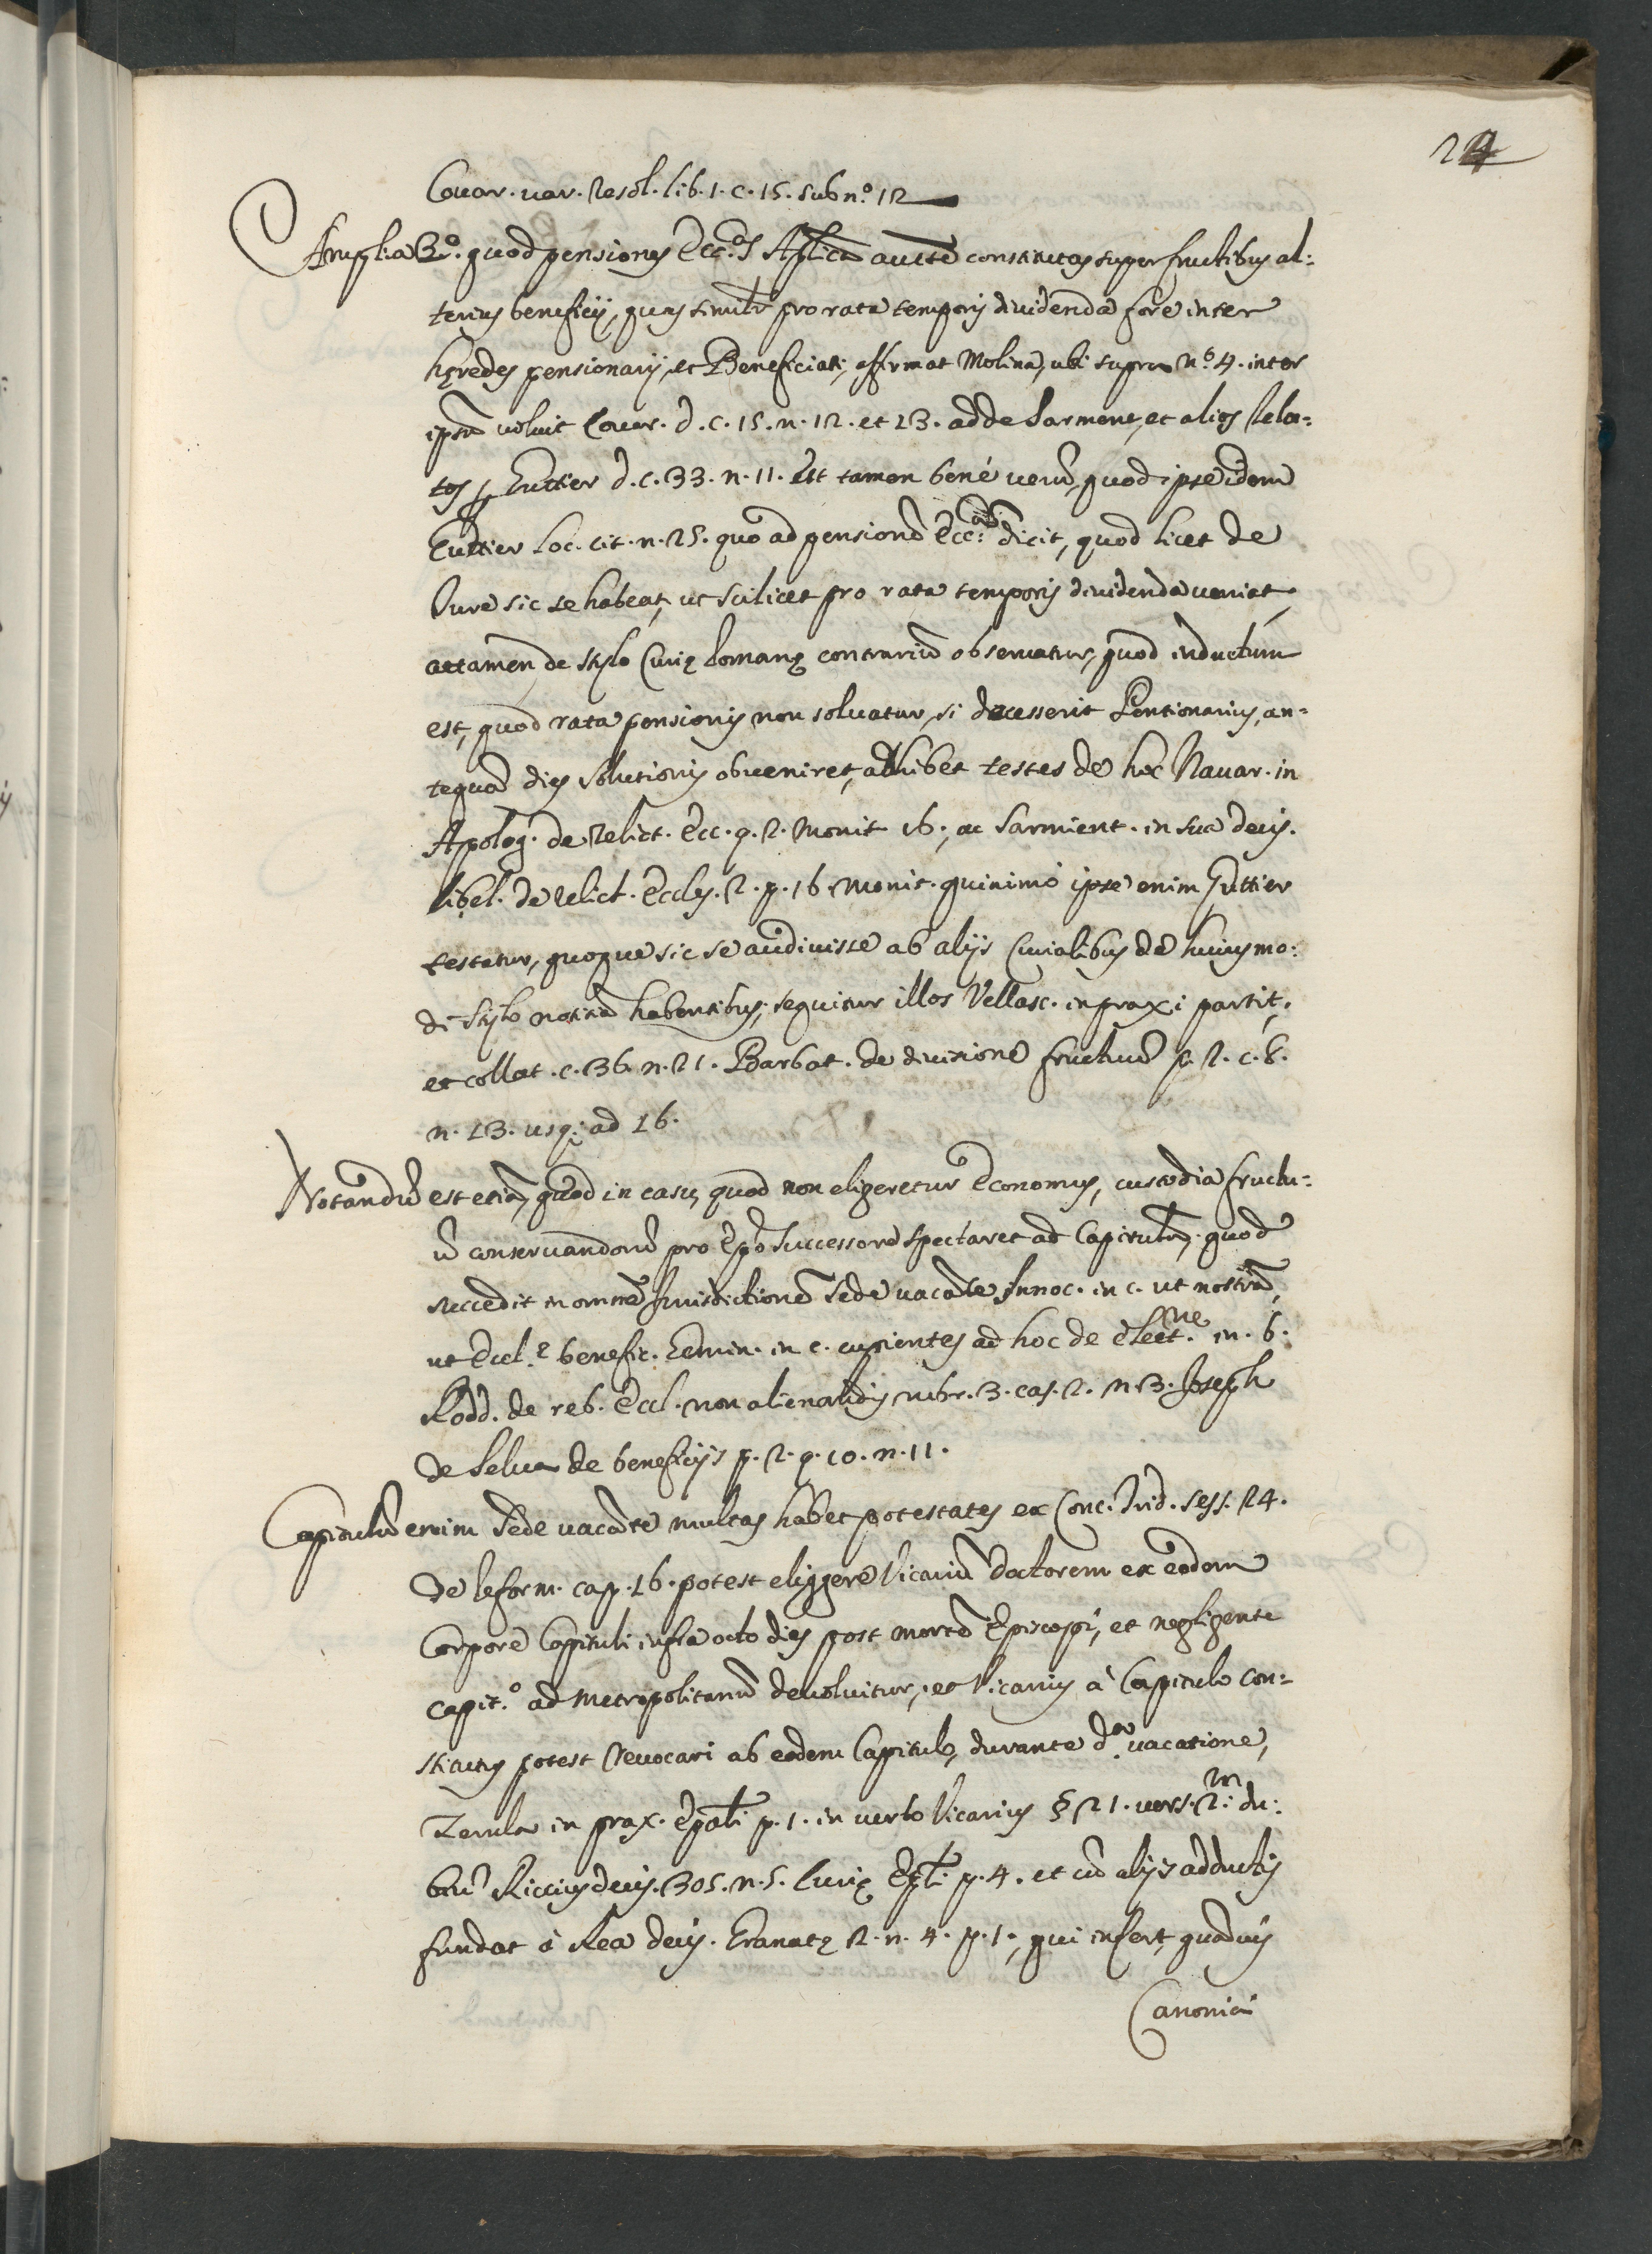 24
Couar. var. Resol. lib. 1. c. 15. sub n.º 12
Amplia 3º. quod pensiones Ecc.as Aplicã auctte constitutas super fructibus al:
terius beneficij, quas similr pro rata temporis diuidenda fore inter
hęredes pensionarij, et Beneficiati, affirmat Molina, ubi supra n.º 4. inter
ipsũ voluit Couar. d. c. 15. n. 12. et 13. adde Sarment, et alios Rela:
tos Guttier d. c. 33. n. 11. Est tamen bené verũ, quod ipse idem
Guttier Loc. cit. n. 25. quo ad pensionẽ Ecc.as dicit, quod licet de
Jure sic se habeat, ut scilicet pro rata temporis diuidenda veniat,
attamen de stylo Curię Romanę contrariũ obseruatur, quod inductum
est, quod rata pensionis non soluatur, si decesserit Pentionarius, an:
tequã dies solutionis obueniret, adhibet testes de hoc Nauar. in
Apolog. de relict. Ecc. q. 2. monit 16., ac Sarmient. in sua decis.
libel. de relict. Eccles. 2. p. 16. monit. quinimó ipse enim Guttier
testatur, quoque sic se audiuisse ab alijs Curialibus de huiusmo:
di stylo notitiã habentibus, sequitur illos Vellasc. in praxi partit,
et collat. c. 36. n. 21. Barbat. de diuisione fructuũ p. 2. c. 8.
n. 13. usq; ad 16.
Notandũ est etiã, quod in casu, quod non eligeretur Economus, custodia fructu:
ũ conseruandorũ pro Epõ successore spectaret ad Capitulũ, quod
succedit in omnẽ Jurisdictionẽ Sede vacãte Innoc. in c. ut nostrũ,
ut Eccl.ę benefic. Gemin. in c. cupientes ad hoc de Elect.ne in. 6.
Rodd. de reb. Eccl. non alienandis rubr. 3. cap. 2. n. 3. Joseph
de Selua de beneficijs p. 2. q. 10. n. 11.
Capitulũ enim Sede vacãte multas habet potestates ex Conc. Trid. sess. 24.
de Reform. cap. 16. potest eliggere Vicariũ doctorem ex eodem
Corpore Capituli infra octo dies post mortẽ Episcopi, et negligente
capit.º ad Metropolitanũ deuoluitur, et Vicarius à Capitulo con:
stitutus potest reuocari ab eodem Capitulo, durante d.a vacatione,
Zerula in prax. Epali p. 1. in verbo Vicarius § 21. vers. 2.m du:
biũ Riccius decis. 305. n. 5. Curię Epli p. 4. et cũ alijs adductis
fundat á Rea decis. Granatę 2. n. 4. p. 1., qui infert, quãuis
Canonici